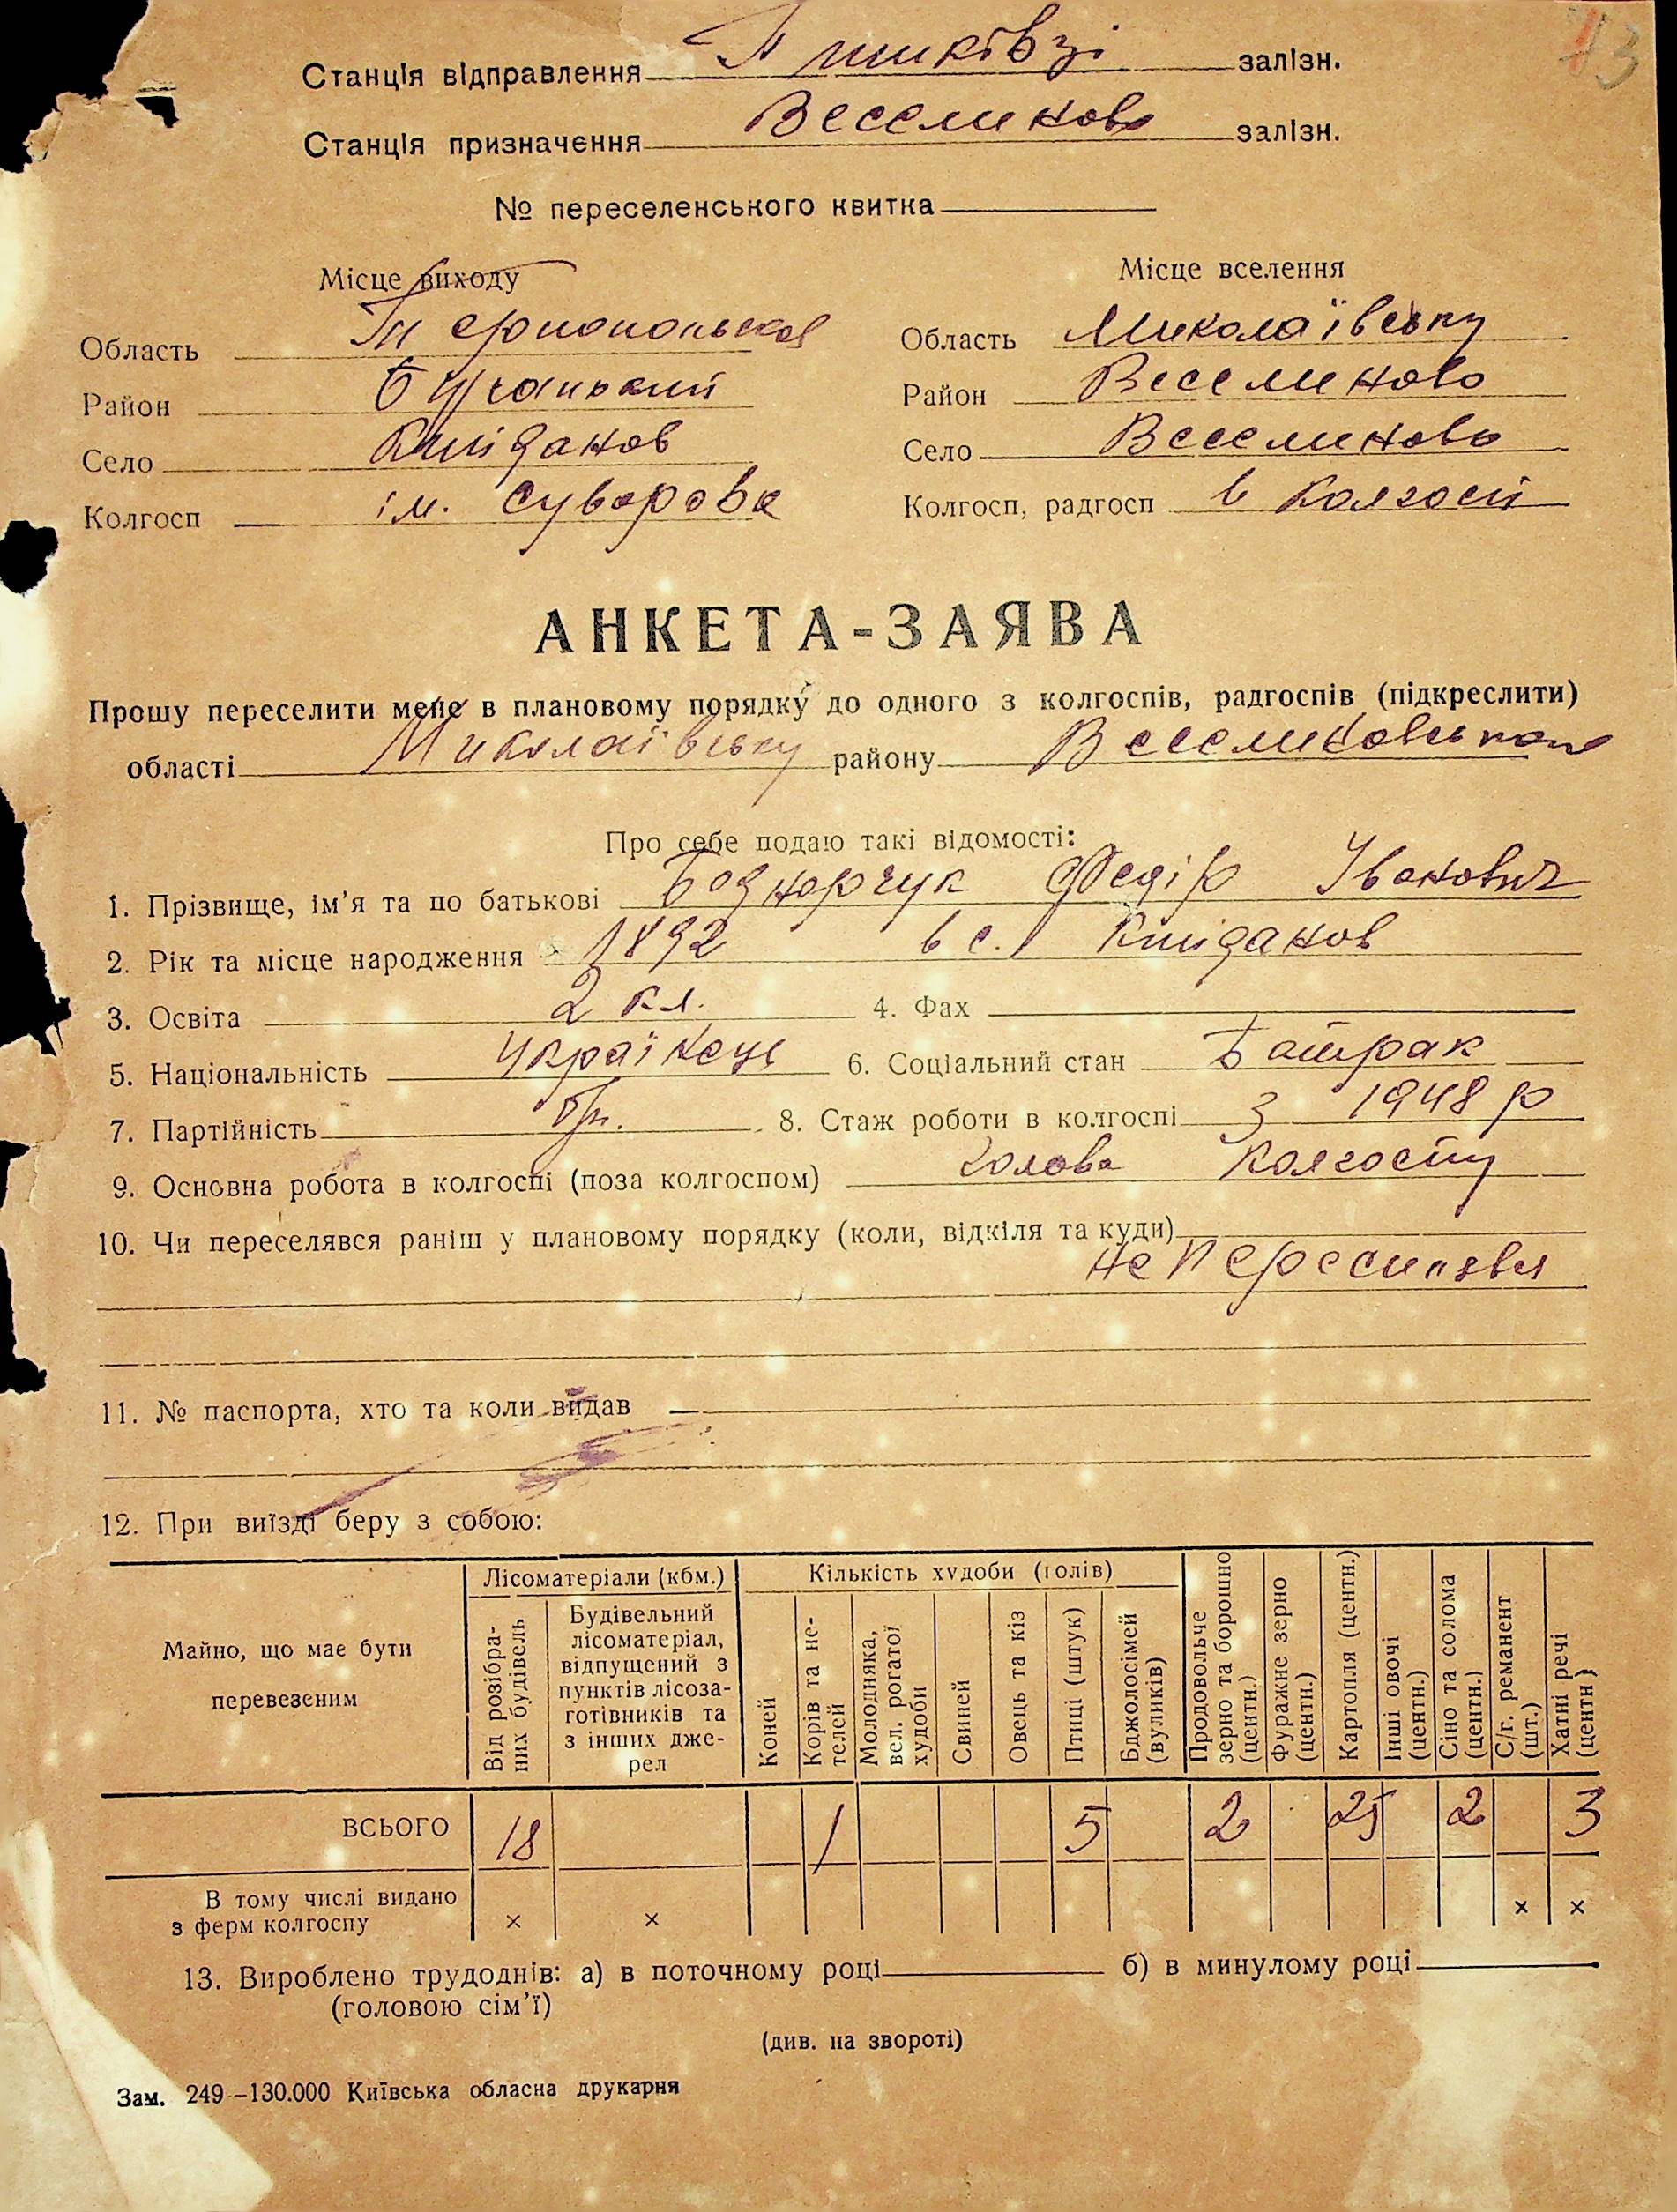 Станція відправлення Пишківці залізн.
Станція призначення Веселиново залізн.
№ переселенського квитка
Місце виходу Місце вселення
Область Тернопольска Область Миколаївську
Район Бучацький Район Веселиново
Село Кийданов Село Веселиново
Колгосп ім. Суворова Колгосп, радгосп в Колгосп
АНКЕТА-ЗАЯВА
Прошу переселити мене в плановому порядку до одного з колгоспів, радгоспів (підкреслити)
області Миколаївську району
Про себе подаю такі відомості:
1. Прізвище, ім'я та по батькові Боднарчук Федір Іванович
2. Рік та місце народження 1892 в с. Кийданов
3. Освіта 2 кл. 4. Фах
5. Національність Українець 6. Соціальний стан Батрак
7. Партійність 8. Стаж роботи в колгоспі з 1948 р
9. Основна робота в колгоспі (поза колгоспом) голова колгоспу
10. Чи переселявся раніш у плановому порядку (коли, відкіля та куди)
не
11. № паспорта, хто та коли видав —
12. При виїзді беру з собою:
Майно, що має бути перевезеним
Лісоматеріали (кбм.)
Від розібраних будівель
Будівельний лісоматеріал, відпущений з пунктів лісозаготівників та з інших джерел
Кількість худоби (голів)
Коней
Корів та нетелей
Молодняка, вел. рогатої худоби
Свиней
Овець та кіз
Птиці (штук)
Бджолосімей (вуликів)
Продовольче зерно та борошно (центн.)
Фуражне зерно (центн.)
Картопля (центн.)
Інші овочі (центн.)
Сіно та солома (центн.)
С/г. реманент (шт.)
Хатні речі (центн)
ВСЬОГО 18 1 5 2 25 2 3
В тому числі видано
з ферм колгоспу × × × ×
13. Вироблено трудоднів: а) в поточному році б) в минулому році
(головою сім'ї)
(див. на звороті)
Зам. 249–130.000 Київська обласна друкарня